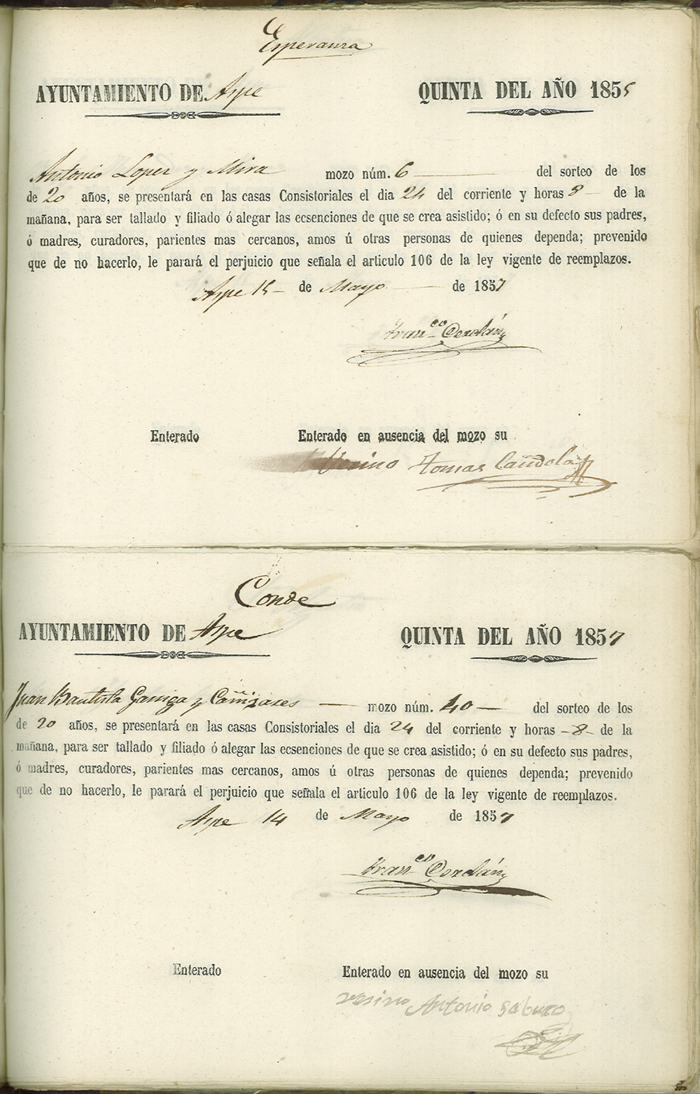 Esperanza
AYUNTAMIENTO DE Aspe QUINTA DEL AÑO 1855
Antonio Lopez y Mira mozo núm. 6 del sorteo de los
de 20 años, se presentará en las casas Consistoriales el dia 24 del corriente y horas 8 de la
mañana, para ser tallado y filiado ó alegar las ecsenciones de que se crea asistido; ó en su defecto sus padres,
ó madres, curadores, parientes mas cercanos, amos ú otras personas de quienes dependa; prevenido
que de no hacerlo, le parará el perjuicio que señala el articulo 106 de la ley vigente de reemplazos.
Aspe de Mayo de 1857
Fran.co
Enterado Enterado en ausencia del mozo su
Vecino Tomas Cañdela
Conde
AYUNTAMIENTO DE Aspe QUINTA DEL AÑO 1857
Juan Bautista y Cañizares mozo núm. 40 del sorteo de los
de 20 años, se presentará en las casas Consistoriales el dia 24 del corriente y horas 8 de la
mañana, para ser tallado y filiado ó alegar las ecsenciones de que se crea asistido; ó en su defecto sus padres,
ó madres, curadores, parientes mas cercanos, amos ú otras personas de quienes dependa; prevenido
que de no hacerlo, le parará el perjuicio que señala el articulo 106 de la ley vigente de reemplazos.
Aspe 14 de Mayo de 1857
Fran.co
Enterado Enterado en ausencia del mozo su
vesino Antonio